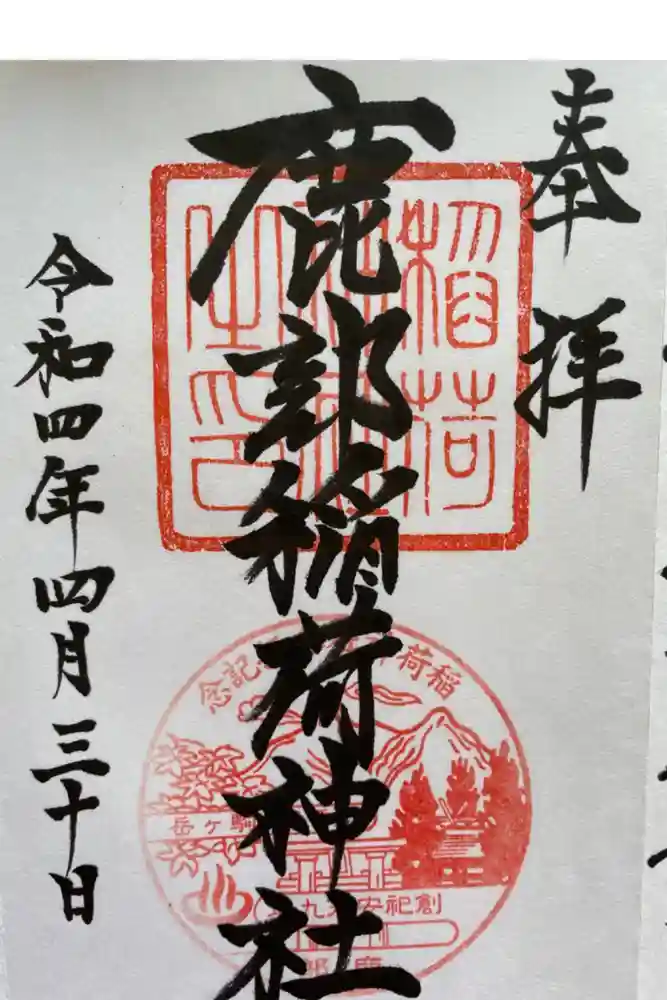 奉拝
鹿部稲荷神社
令和四年四月三十日
稲荷
之印
稲荷
記念
駒ヶ岳
創祀安
九
鹿部